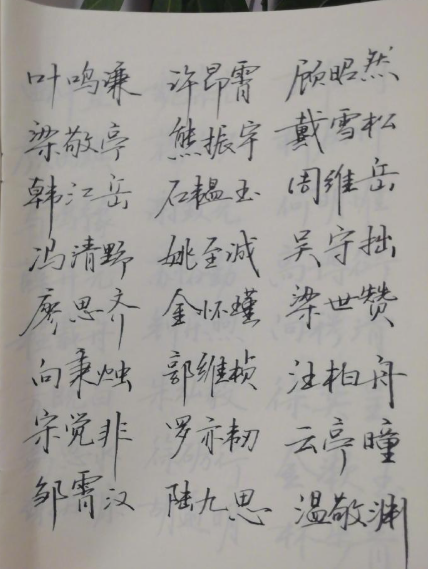 叶鸣谦 许昂霄 顾昭然
梁敬亭 熊振宇 戴雪松
韩江岳 石韫玉 周维岳
冯清野 姚至诚 吴守拙
廖思齐 金怀瑾 梁世赞
向秉烛 郭维桢 汪柏舟
宗觉非 罗亦韧 云亭瞳
邹霄汉 陆九思 温敬渊